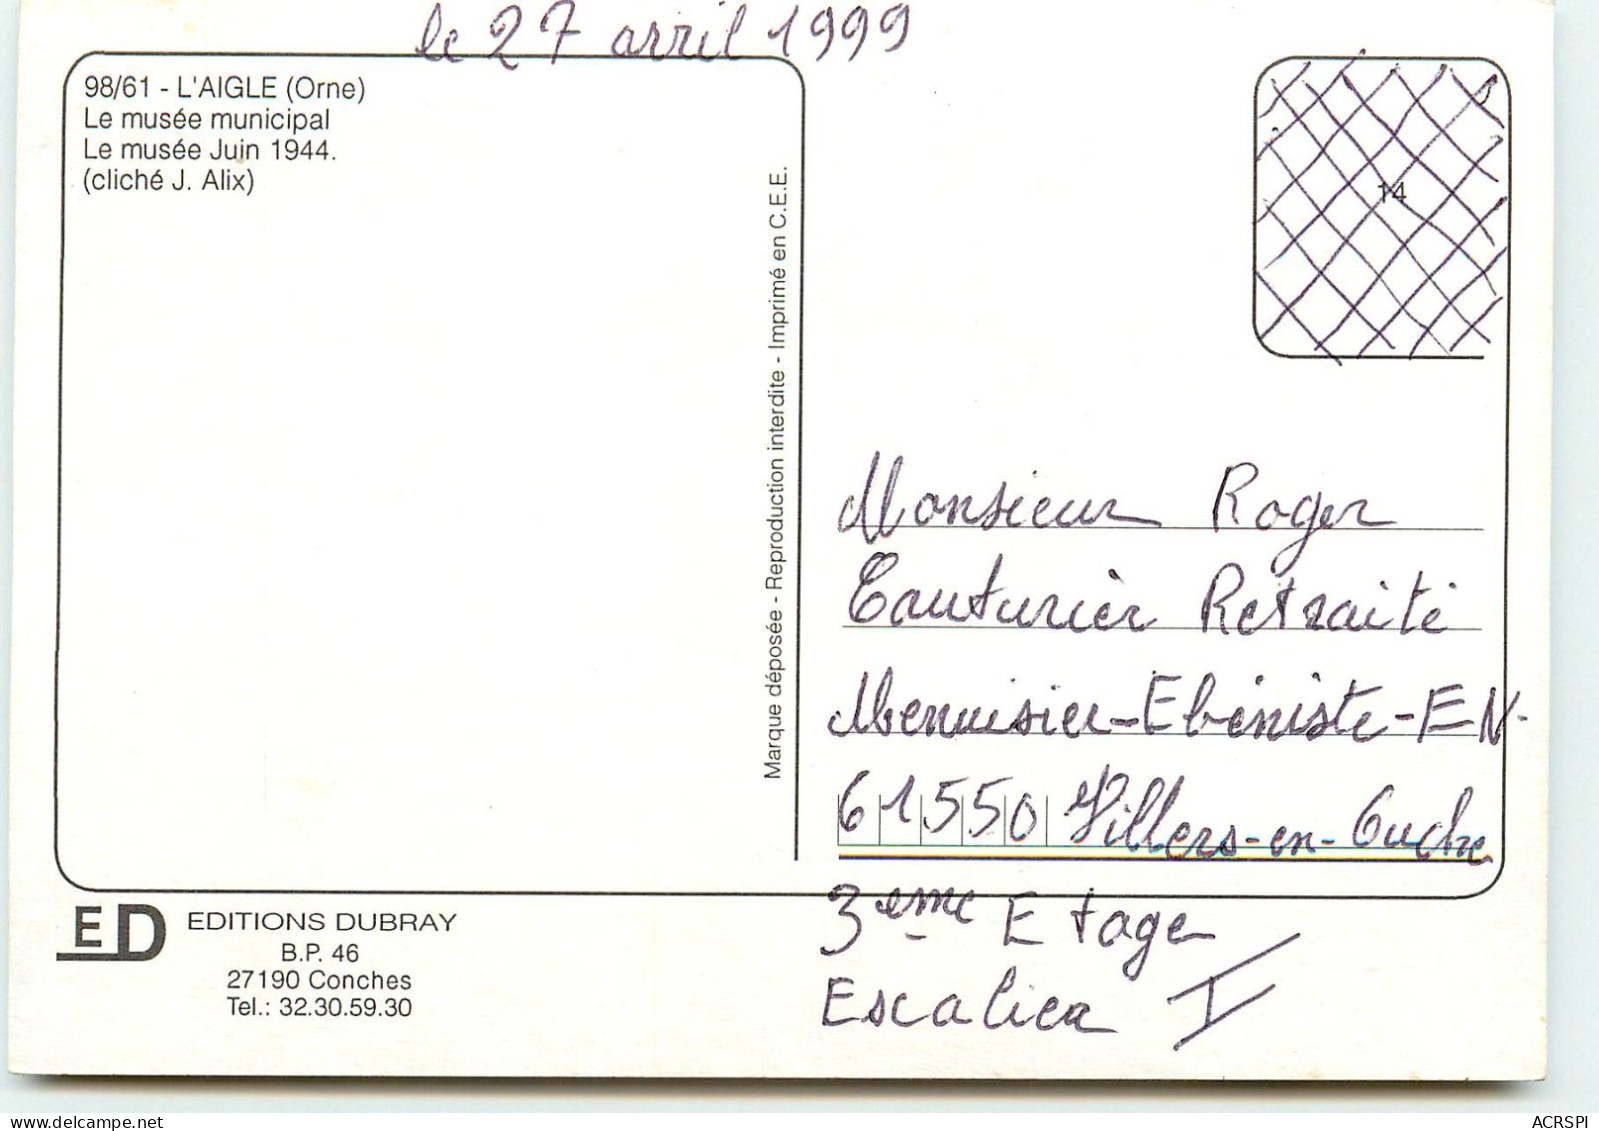 le 27 avril 1999
98/61 - L'AIGLE (Orne)
Le musée municipal
Le musée Juin 1944.
(cliché J. Alix)
Marque déposée - Reproduction interdite - Imprimé en C.E.E.
14
Monsieur Roger
Couturier Retraité
Menuisier-Ebéniste-EN-
61550 Villers-en-Ouche
3eme Etage
Escalier I
ED
EDITIONS DUBRAY
B.P. 46
27190 Conches
Tel.: 32.30.59.30
ACRSPI